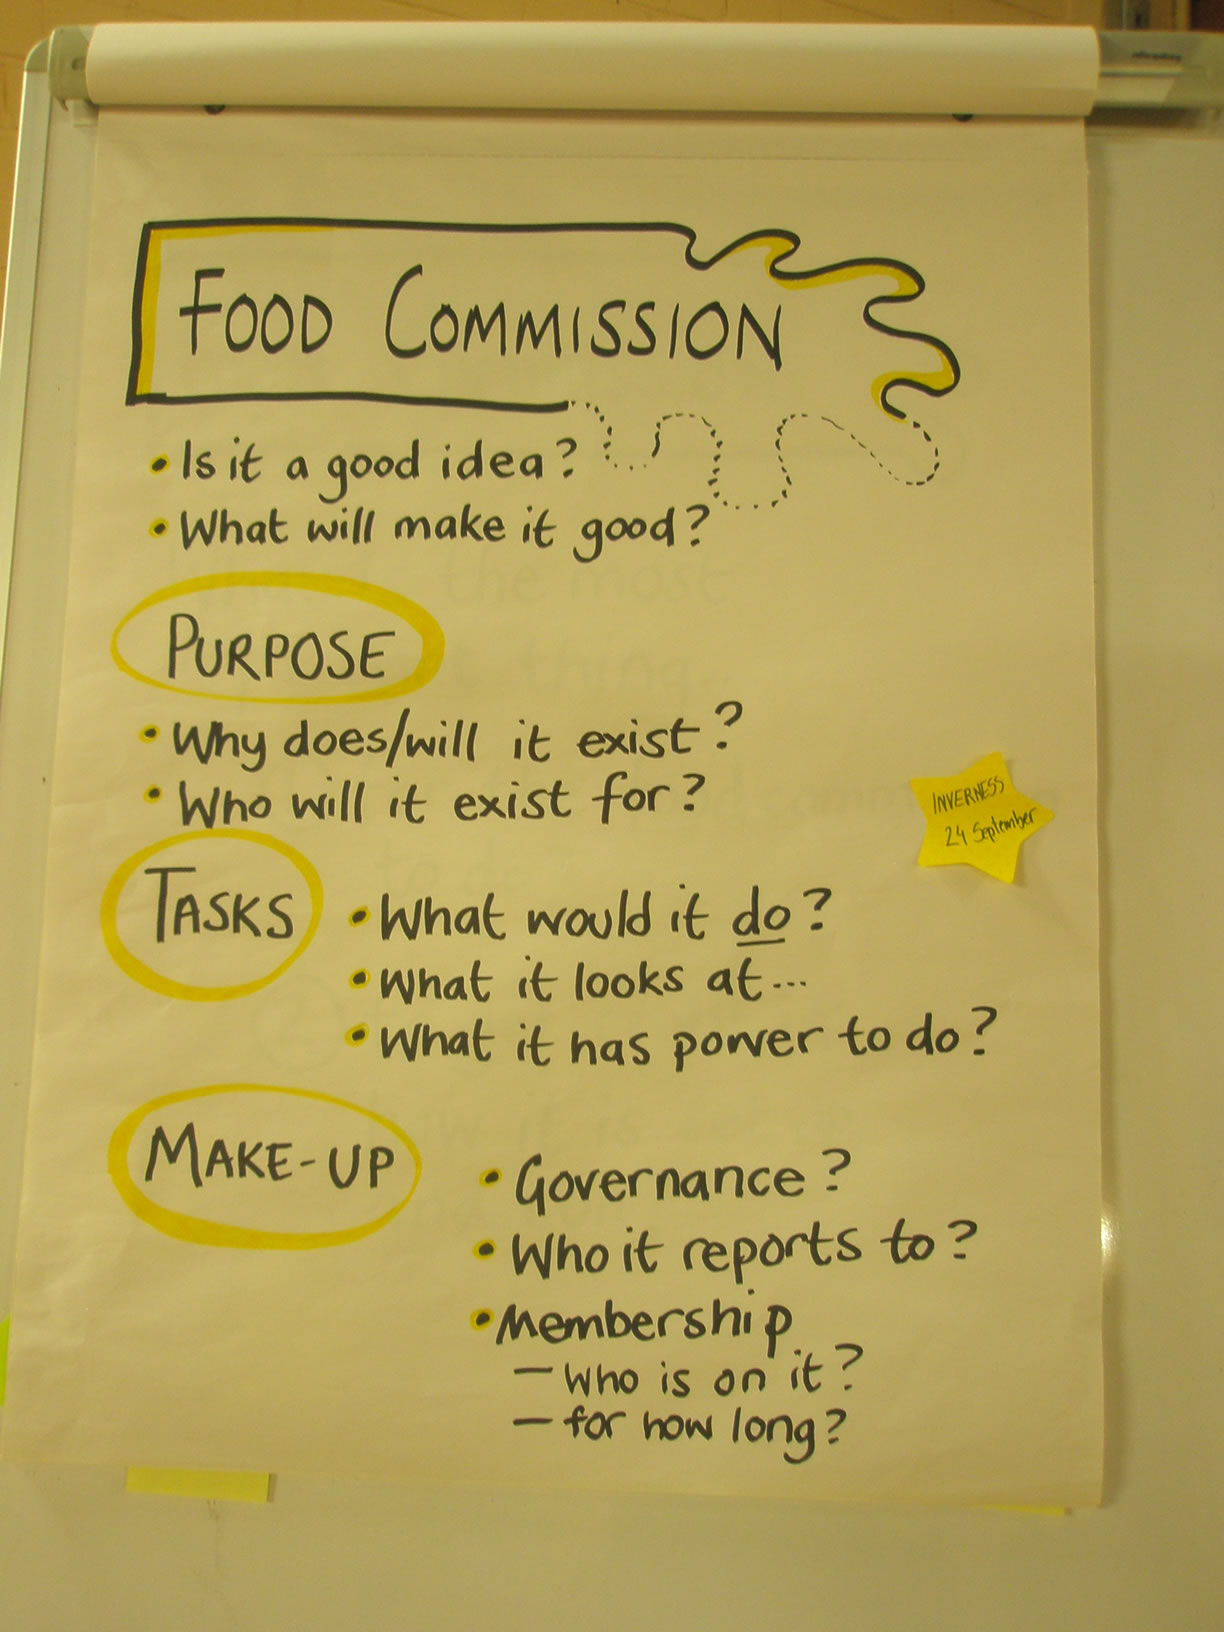 FOOD COMMISSION
• Is it a good idea?
• What will make it good?
PURPOSE
• Why does/will it exist?
• Who will it exist for?
INVERNESS
24 September
TASKS
• What would it do?
• What it looks at...
• What it has power to do?
MAKE-UP
• Governance?
• Who it reports to?
• Membership
– Who is on it?
– for how long?